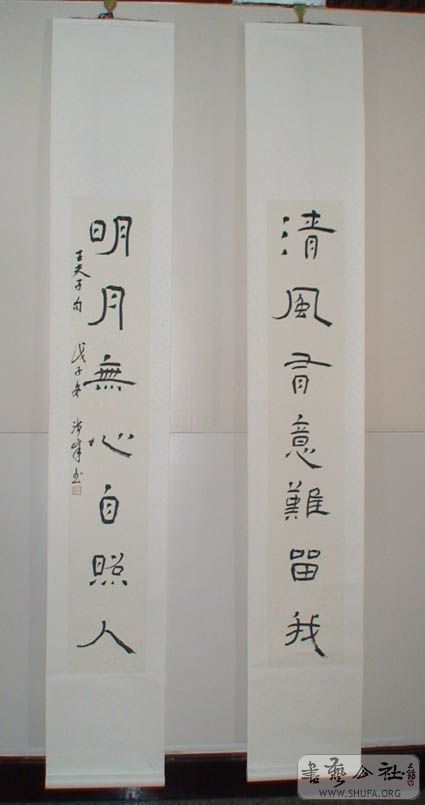 清風有意難留我
明月無心自照人
古夫子句 戊子冬
書藝公社
WWW.SHUFA.ORG